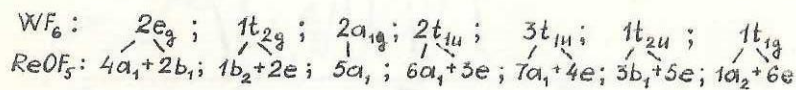 WF₆: 2e_g; 1t_2g; 2a_1g; 2t_1u; 3t_1u; 1t_2u; 1t_1g
ReOF₅: 4a₁+2b₁; 1b₂+2e; 5a₁; 6a₁+3e; 7a₁+4e; 3b₁+5e; 1a₂+6e